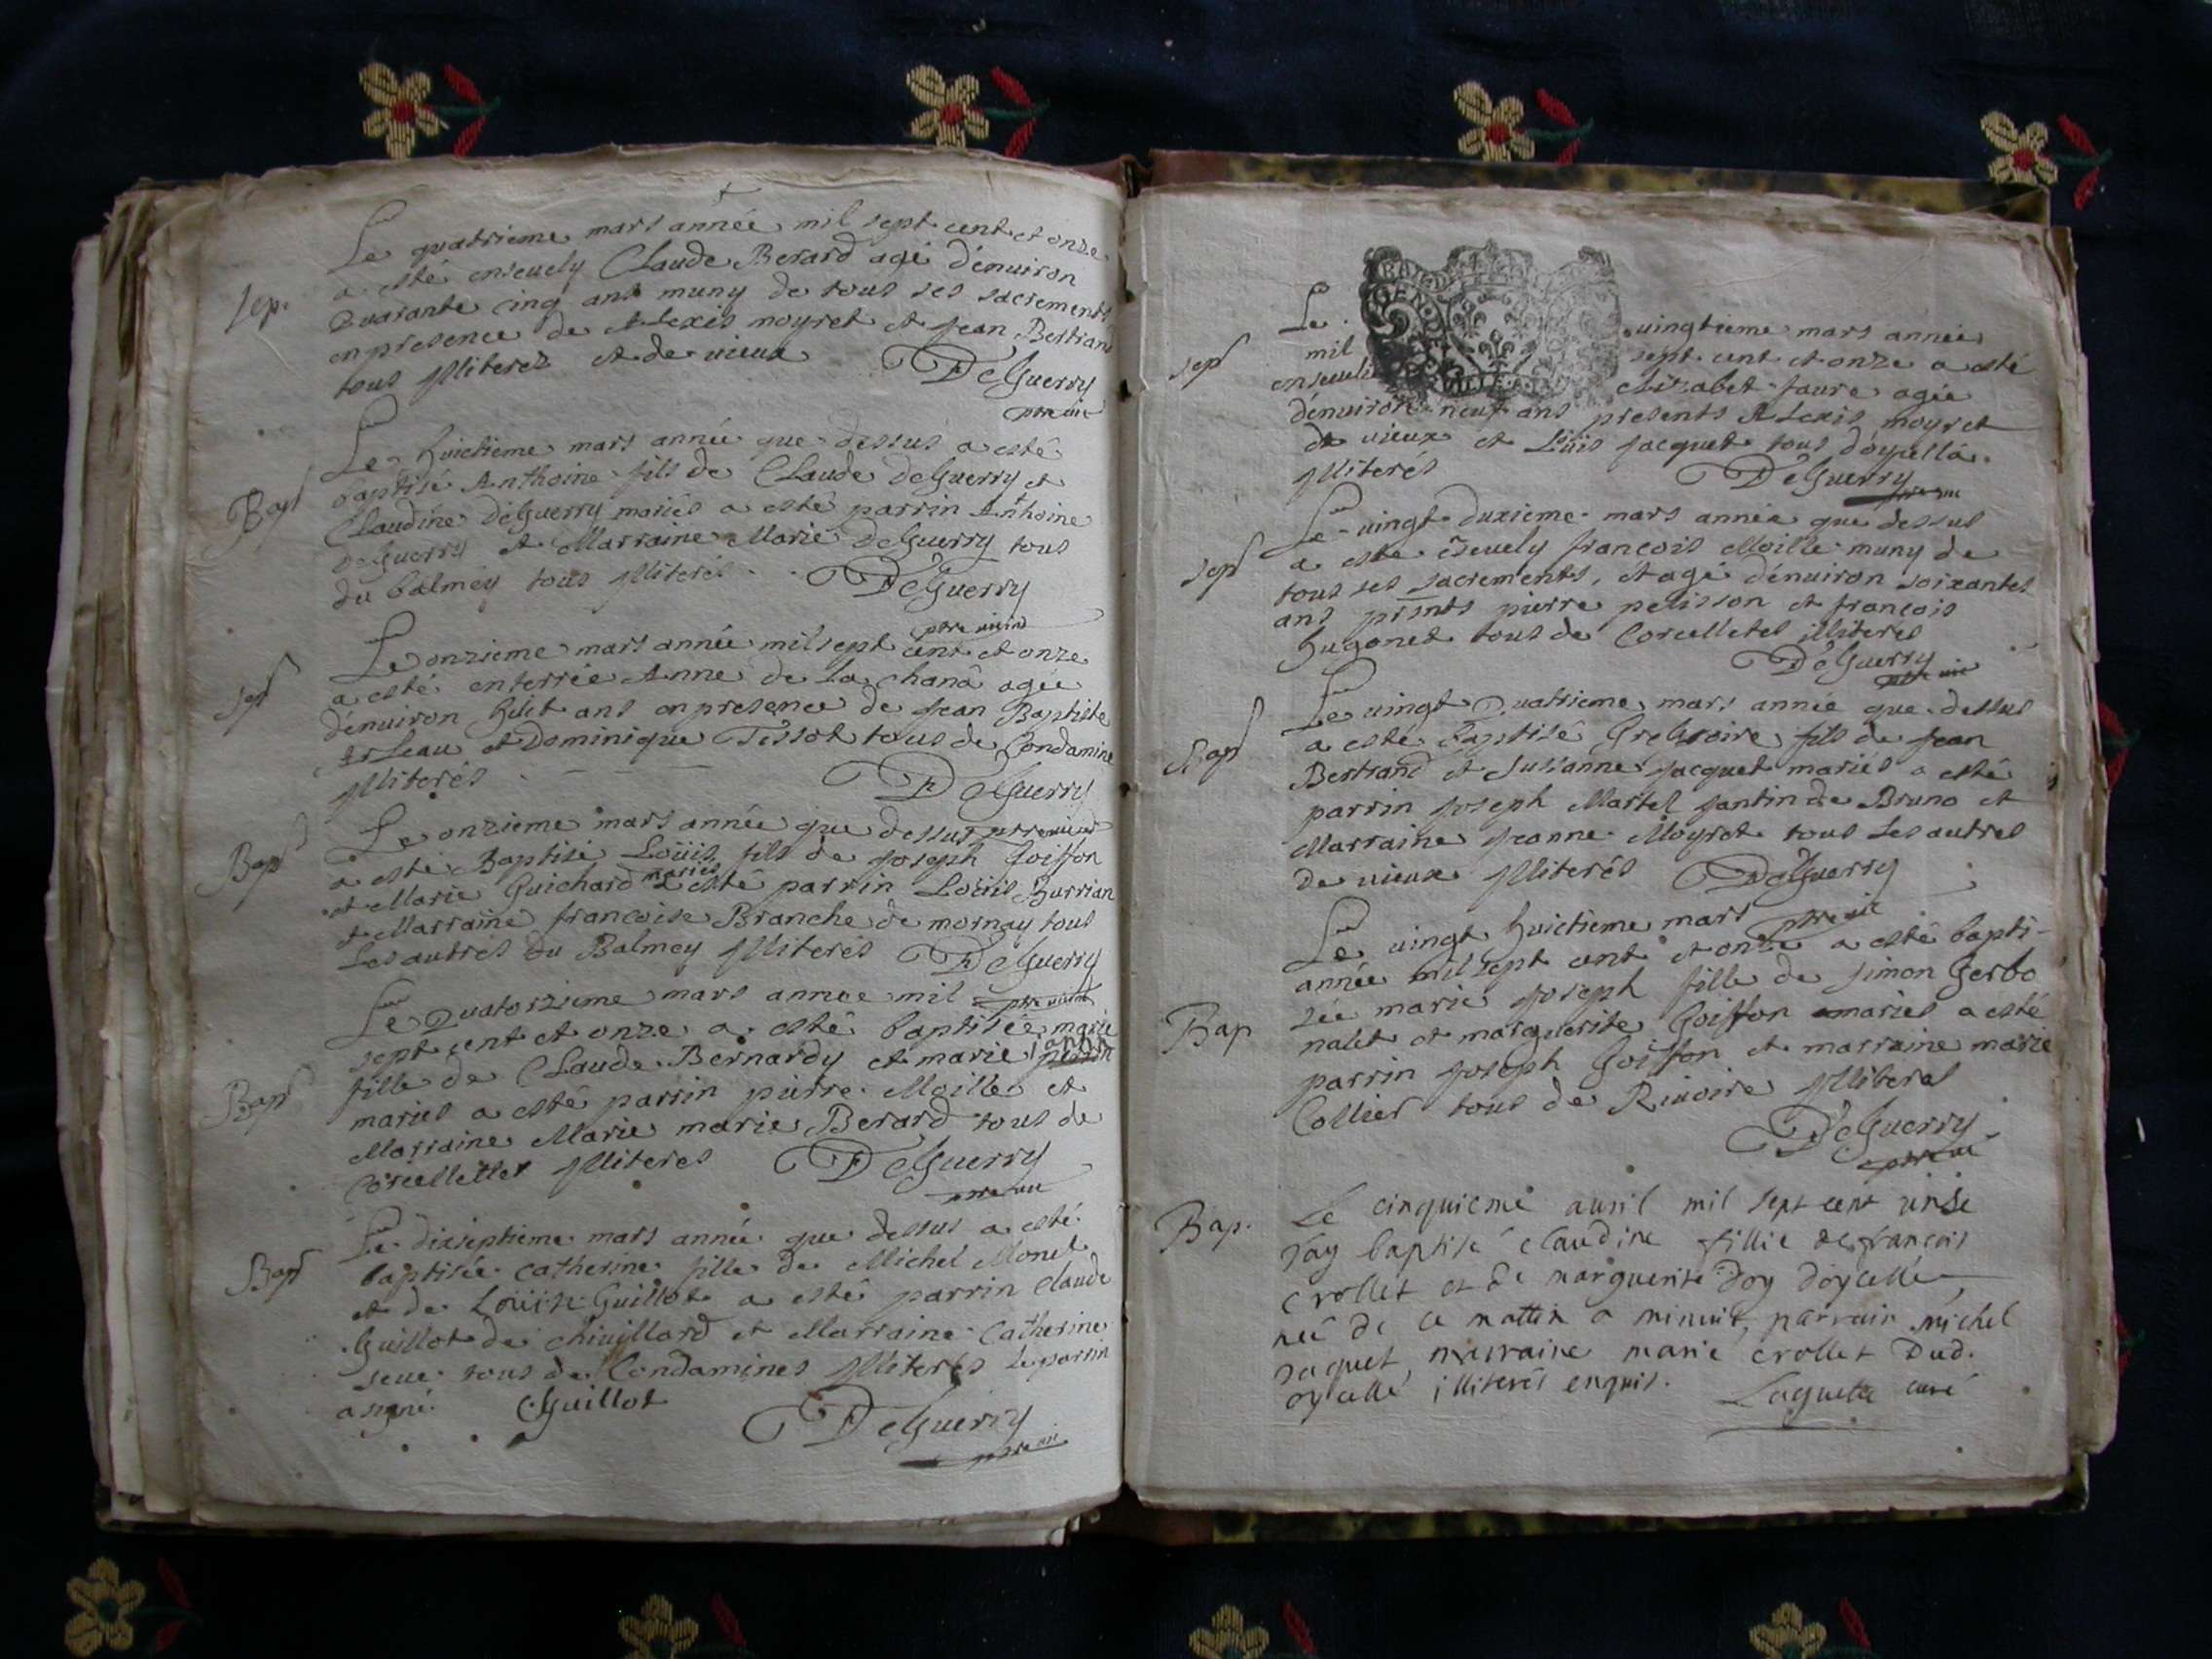 Le quatrieme mars année mil sept cent et onze
Sep. a esté enseuely Claude Berard agé d'enuiron
quarante cinq ans muny de tous ses sacrements
en presence de Alexis moyret et Jean Bertrand
tous Illiterez et de uieux DeGuerry
ptre uic
Le huictieme mars année que dessus a esté
Bapt baptisé Anthoine fils de Claude DeGuerry et
Claudine DeGuerry mariés a esté parrin Anthoine
DeGuerry et Marraine Marie DeGuerry tous
du balmey tous Illiterés DeGuerry
ptre uicin
Le onzieme mars année mil sept cent et onze
Sep a esté enterrée Anne de La chanâ agée
d'enuiron huict ans en presence de Jean Baptiste
Arleau et Dominique Tissot tous de Condamine
Illiterés DeGuerry
Le onzieme mars année que dessus ptre uicin
Bap a esté Baptisé Loüis fils de Joseph Goiffon
et Marie Guichard mariés a esté parrin Loüis Burrian
et Marraine francoise Branche de mornay tous
Les autres du Balmey Illiterés DeGuerry
Le Quatorzieme mars annee mil ptre uicin
sept cent et onze a esté baptisée marie
Bapt fille de Claude Bernardy et marie
mariés a esté parrin pierre Moille et
Marraine Marie marie Berard tous de
Corcellettes Illiteres DeGuerry
ptre uic
Le dixseptieme mars année que dessus a esté
Bapt baptisée catherine fille de Michel Monet
et de Loüise Guillot a esté parrin claude
Guillot de chiuillard et Marraine Catherine
seue tous de Condamines Illiterés le parrin
a signé CGuillot
DeGuerry
ptre uic
Le uingtieme mars année
sep mil sept cent et onze a esté
enseueli elizabet faure agée
d'enuiron neuf ans presents Alexis moyret
de uieux et Loüis Jacquet tous d'oyselles
Illiterés DeGuerry
ptre uic
Le uingt duxieme mars année que dessus
sep a esté ēseuely francois Moille muny de
tous ses sacrements, et agé d'enuiron soixantes
ans prsnts pierre pelisson et francois
hugonet tous de Corcelletes illiterés
DeGuerry
ptre uic
Le uingt Quatrieme mars année que dessus
Bap a esté Baptisé Gregoire fils de Jean
Bertrand et Susanne Jacquet mariés a esté
parrin Joseph Martel Jantin de Bruno et
Marraine Jeanne Moyret tous Les autres
de uieux Illiterés DeGuerry
Le uingt huictieme mars ptre uic
année mil sept cent et onze a esté bapti-
sée marie Joseph fille de simon Gerbo
Bap nalet et marguerite Goiffon mariés a esté
parrin Joseph Goiffon et marraine marie
Collier tous de Riuoire Illiteres
DeGuerry
ptre uic
Bap. Le cinquieme auril mil sept cent unse
J'ay baptisé claudine fillie de francois
Crollet et de marguerite Doy d'oycelle
neé de ce mattin a minuit, parrain michel
Jaquet, marraine marie Crollet Dud.
oycelle illiterés enquis. Laguette curé